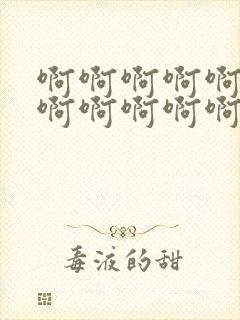 啊啊啊啊啊
啊啊啊啊啊
毒液的甜